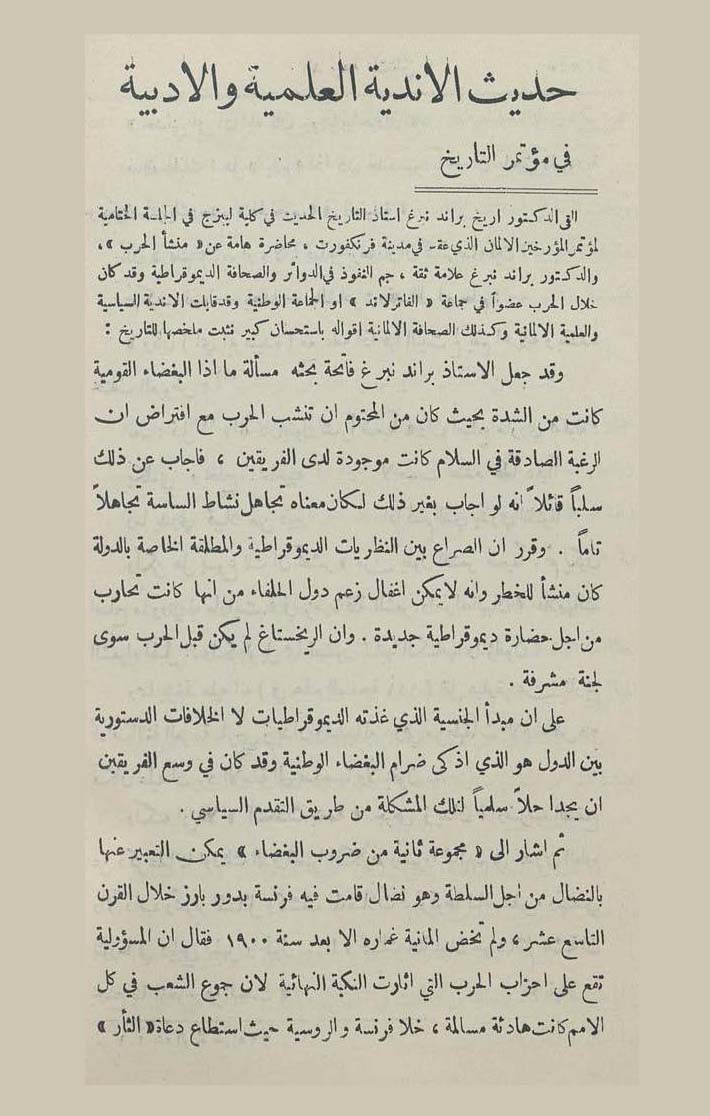 حديث الاندية العلمية والادبية
في مؤتمر التاريخ
القى الدكتور اريخ براند نبرغ استاذ التاريخ الحديث في كلية ليبزج في الجلسة الختامية
لمؤتمر المؤرخين الالمان الذي عقد في مدينة فرنكفورت ، محاضرة هامة عن « منشأ الحرب » ،
والدكتور براند نبرغ علامة ثقة ، جم النفوذ في الدوائر والصحافة الديموقراطية وقد كان
خلال الحرب عضواً في جماعة « الفاترلاند » او الجماعة الوطنية وقد قابلت الاندية السياسية
والعلمية الالمانية وكذلك الصحافة الالمانية اقواله باستحسان كبير نثبت ملخصها للتاريخ :
وقد جعل الاستاذ براند نبرغ فاتحة بحثه مسألة ما اذا البغضاء القومية
كانت من الشدة بحيث كان من المحتوم ان تنشب الحرب مع افتراض ان
الرغبة الصادقة في السلام كانت موجودة لدى الفريقين ، فاجاب عن ذلك
سلباً قائلاً انه لو اجاب بغير ذلك لكان معناه تجاهل نشاط الساسة تجاهلاً
تاماً . وقرر ان الصراع بين النظريات الديموقراطية والمطلقة الخاصة بالدولة
كان منشأ للخطر وانه لا يمكن اغفال زعم دول الحلفاء من انها كانت تحارب
من اجل حضارة ديموقراطية جديدة . وان الريخستاغ لم يكن قبل الحرب سوى
لجنة مشرفة .
على ان مبدأ الجنسية الذي غذته الديموقراطيات لا الخلافات الدستورية
بين الدول هو الذي اذكى ضرام البغضاء الوطنية وقد كان في وسع الفريقين
ان يجدا حلاً سلمياً لتلك المشكلة من طريق التقدم السياسي .
ثم اشار الى « مجموعة ثانية من ضروب البغضاء » يمكن التعبير عنها
بالنضال من اجل السلطة وهو نضال قامت فيه فرنسة بدور بارز خلال القرن
التاسع عشر ، ولم تخض المانية غماره الا بعد سنة ١٩٠٠ فقال ان المسؤولية
تقع على احزاب الحرب التي اثارت النكبة النهائية لان جموع الشعب في كل
الامم كانت هادئة مسالمة ، خلا فرنسة والروسية حيث استطاع دعاة « الثأر »